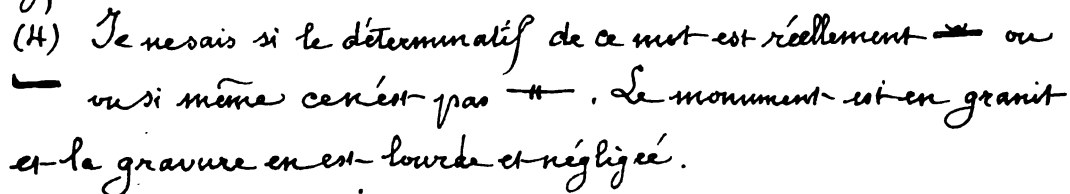 (4) Je ne sais si le déterminatif de ce mot est réellement ou
ou si même ce n'est pas . Le monument est en granit
et la gravure en est lourde et négligée.